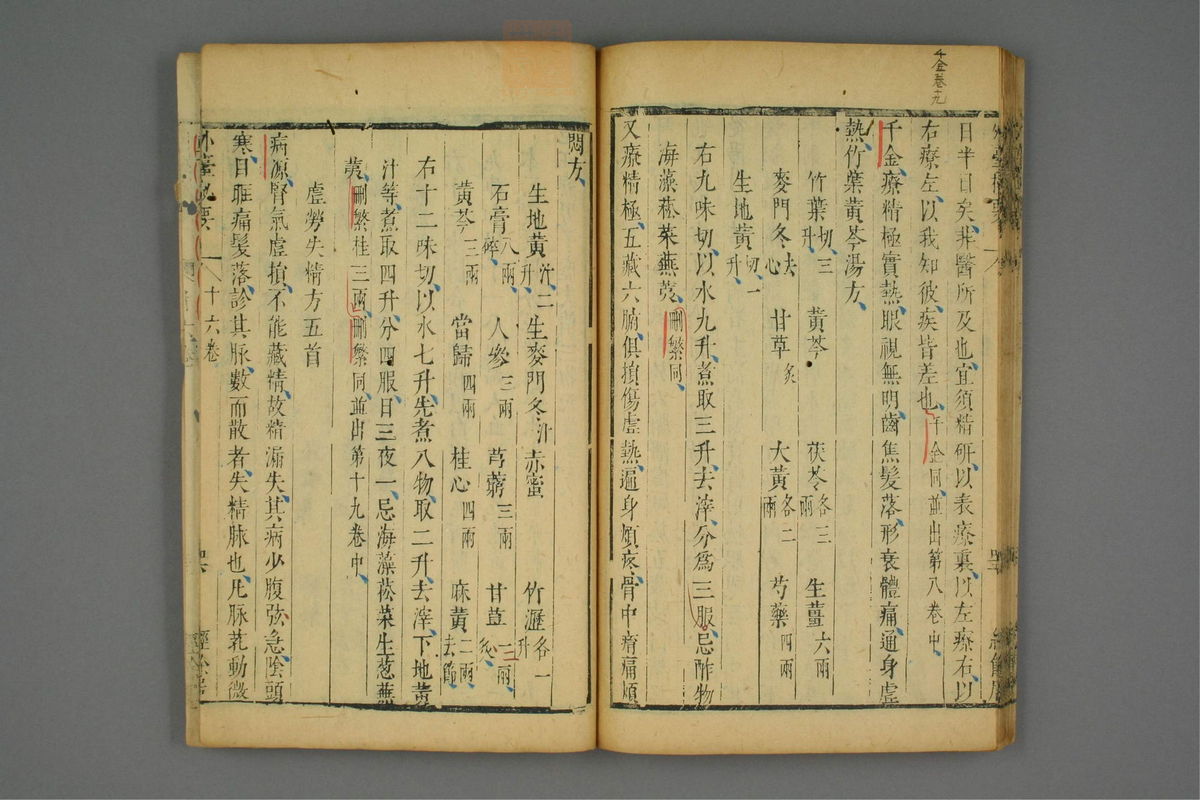 千金卷十九
日半日矣非醫所及也宜須精研以表療裏以左療右以
右療左以我知彼疾皆差也千金同並出第八卷中
千金療精極實熱眼視無明齒焦髮落形衰體痛通身虛
熱竹葉黃芩湯方
竹葉切三升 黃芩 茯苓各三兩 生薑六兩
麥門冬去心 甘草炙 大黃各二兩 芍藥四兩
生地黃切一升
右九味切以水九升煮取三升去滓分爲三服忌酢物
海藻菘菜蕪荑刪繁同
又療精極五藏六腑俱損傷虛熱遍身煩疼骨中痟痛煩
悶方
生地黃汁二升 生麥門冬汁 赤蜜 竹瀝各一升
石膏八兩碎 人參三兩 芎藭三兩 甘草二兩炙
黃芩三兩 當歸四兩 桂心四兩 麻黃二兩去節
右十二味切以水七升先煮八物取二升去滓下地黃
汁等煮取四升分四服日三夜一忌海藻菘菜生葱蕪
荑刪繁桂三兩刪繁同並出第十九卷中
虛勞失精方五首
病源腎氣虛損不能藏精故精漏失其病少腹弦急陰頭
寒目眶痛髮落診其脉數而散者失精脉也凡脉芤動微
外臺秘要 十六卷